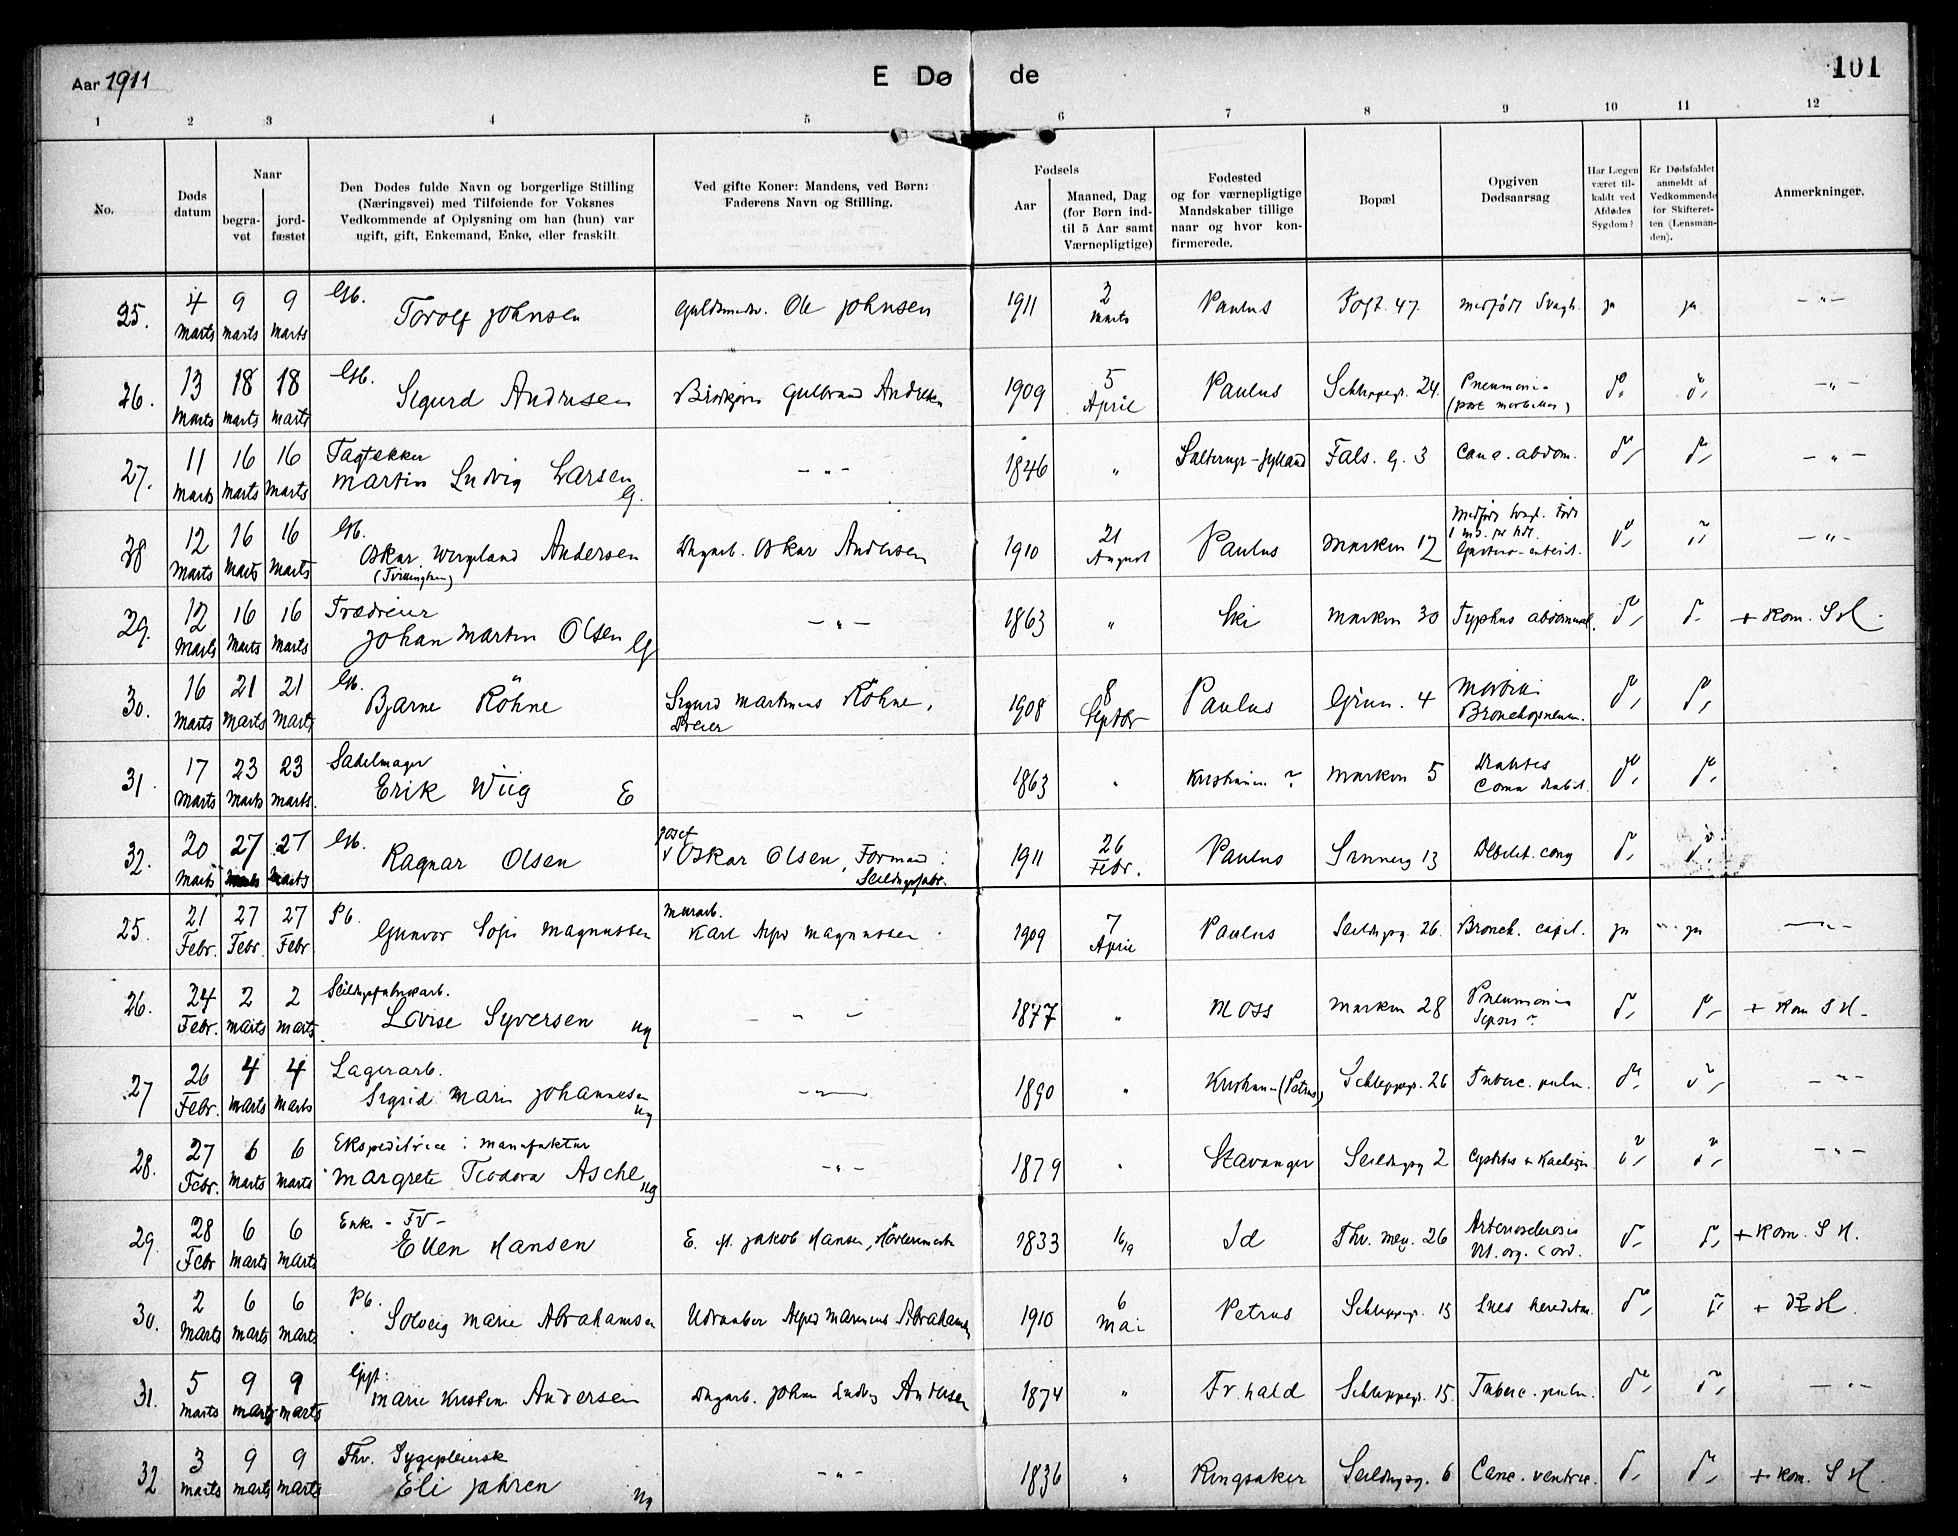 Aar 1911
E Dø de
101
1 2 3 4 5 6 7 8 9 10 11 12
No.
Døds datum
Naar
begravet
jordfæstet
Den Dødes fulde Navn og borgerlige Stilling
(Næringsvei) med Tilføiende for Voksnes
Vedkommende af Oplysning om han (hun) var
ugift, gift, Enkemand, Enke, eller fraskilt
Ved gifte Koner: Mandens, ved Børn:
Faderens Navn og Stilling.
Fødsels
Aar
Maaned, Dag
(for Børn ind-
til 5 Aar samt
Værnepligtige)
Fødested
og for værnepligtige
Mandskaber tillige
naar og hvor kon-
firmerede.
Bopæl
Opgiven
Dødsaarsag
Har Lægen
været til-
kaldt ved
Afdødes
Sygdom?
Er Dødsfaldet
anmeldt af
Vedkommende
for Skifteret-
ten (Lensman-
den).
Anmerkninger.
25. 4 Marts 9 marts 9 Marts Gb. Torolf Johnsen Guldsmedsv. Ole Johnsen 1911 2 Marts Paulus Togt. 47. medfødt Svagh. ja ja -"-
26. 13 Marts 18 marts 18 marts Gb. Sigurd Andresen Gulbrand Andresen 1909 5 April Paulus Schleppegr. 24. Pneumonia (post morbillos) do. do. -"-
27. 11 Marts 16 Marts 16 Marts Tagtekker Martin Ludvig Larsen G. -"- 1846 " Jylland Fals. G. 3 Canc. abdom. do. do. -"-
28 12 Marts 16 Marts 16 Marts Gb. Oskar Wergeland Andersen (Tvilling) Dagarb. Oskar Andersen 1910 21 August Paulus Marken 17 Medfødt Svagh. Født 1 md. før tid. Gastro-enterit. do. do. -"-
29. 12 Marts 16 Marts 16 Marts Trædreier Johan Martin Olsen G -"- 1863 " Ski Marken 30 Typhus abdominal. do. do. + Kom. S H.
30. 16 Marts 21 Marts 21 Marts Gb. Bjarne Röhne Sigurd Martinius Röhne, Dreier 1908 8 Septbr Paulus Grün. 4 Morbilli Bronchopneum. do. do.
31. 17 Marts 23 Marts 23 marts. Sadelmager Erik Wiig E 1863 " Kristiania ? Marken 5 Diabetes Coma diabet. do. do.
32. 20 Marts 27 Marts 27 Marts Gb. Ragnar Olsen Josef Oskar Olsen, Formand Seildugsfabr. 1911 26 Febr. Paulus Sannerg 13 Debilit. cong do. do.
25. 21 Febr. 27 Febr. 27 Febr. Pb. Gunvor Sofie Magnussen Murarb. Karl Alfred Magnussen 1909 7 April Paulus Seildugsg. 26. Bronch. capil. ja ja -"-
26. 24 Febr. 2 Marts 2 marts Seildugsfabrikarb. Lovise Syversen ug - " - 1877 " Moss Marken 28 Pneumonia Sepsis ? do. do. + Kom S H.
27 26 Febr. 4 Marts 4 Marts Lagerarb. Sigrid Marie Johannesen ug -"- 1890 " Kristiania (Petrus) Schleppegr. 26 Tuberc. pulm. do. do. -"-
28. 27 Febr. 6 Marts 6 Marts Ekspeditrice i manufaktur Margrete Teodora Aschl ug -"- 1879 " Stavanger Seildugsg 2 Cystitis + Kachexi. do. do. -"-
29. 28 Febr 6 Marts 6 Marts Enke - FV - Ellen Hansen E. ef. Jakob Hansen, 1833 16/9 Id Thv. Mey. 26 Arteriosclerosis Vit. org. cord. do. do. + Kom. S H.
30. 2 Marts 6 Marts 6 Marts Pb. Solveig Marie Abrahamsen Alfred Marinius Abrahamsen 1910 6 Mai Petrus Schleppegr. 15 Lues hereditar. do. do. + H.
31. 5 Marts 9 Marts 9 Marts Gift: Marie Kristine Andersen Dagarb. Johan Ludvig Andersen 1874 " Fr.hald Schleppegr. 15. Tuberc. pulm. do. do. -"-
32 3 Marts 9 Marts 9 Marts Fhv. Sygepleierske Eli Jahren ug -"- 1836 " Ringsaker Seildugsg. 6 Canc. ventric. do. do. + Kom. S H.